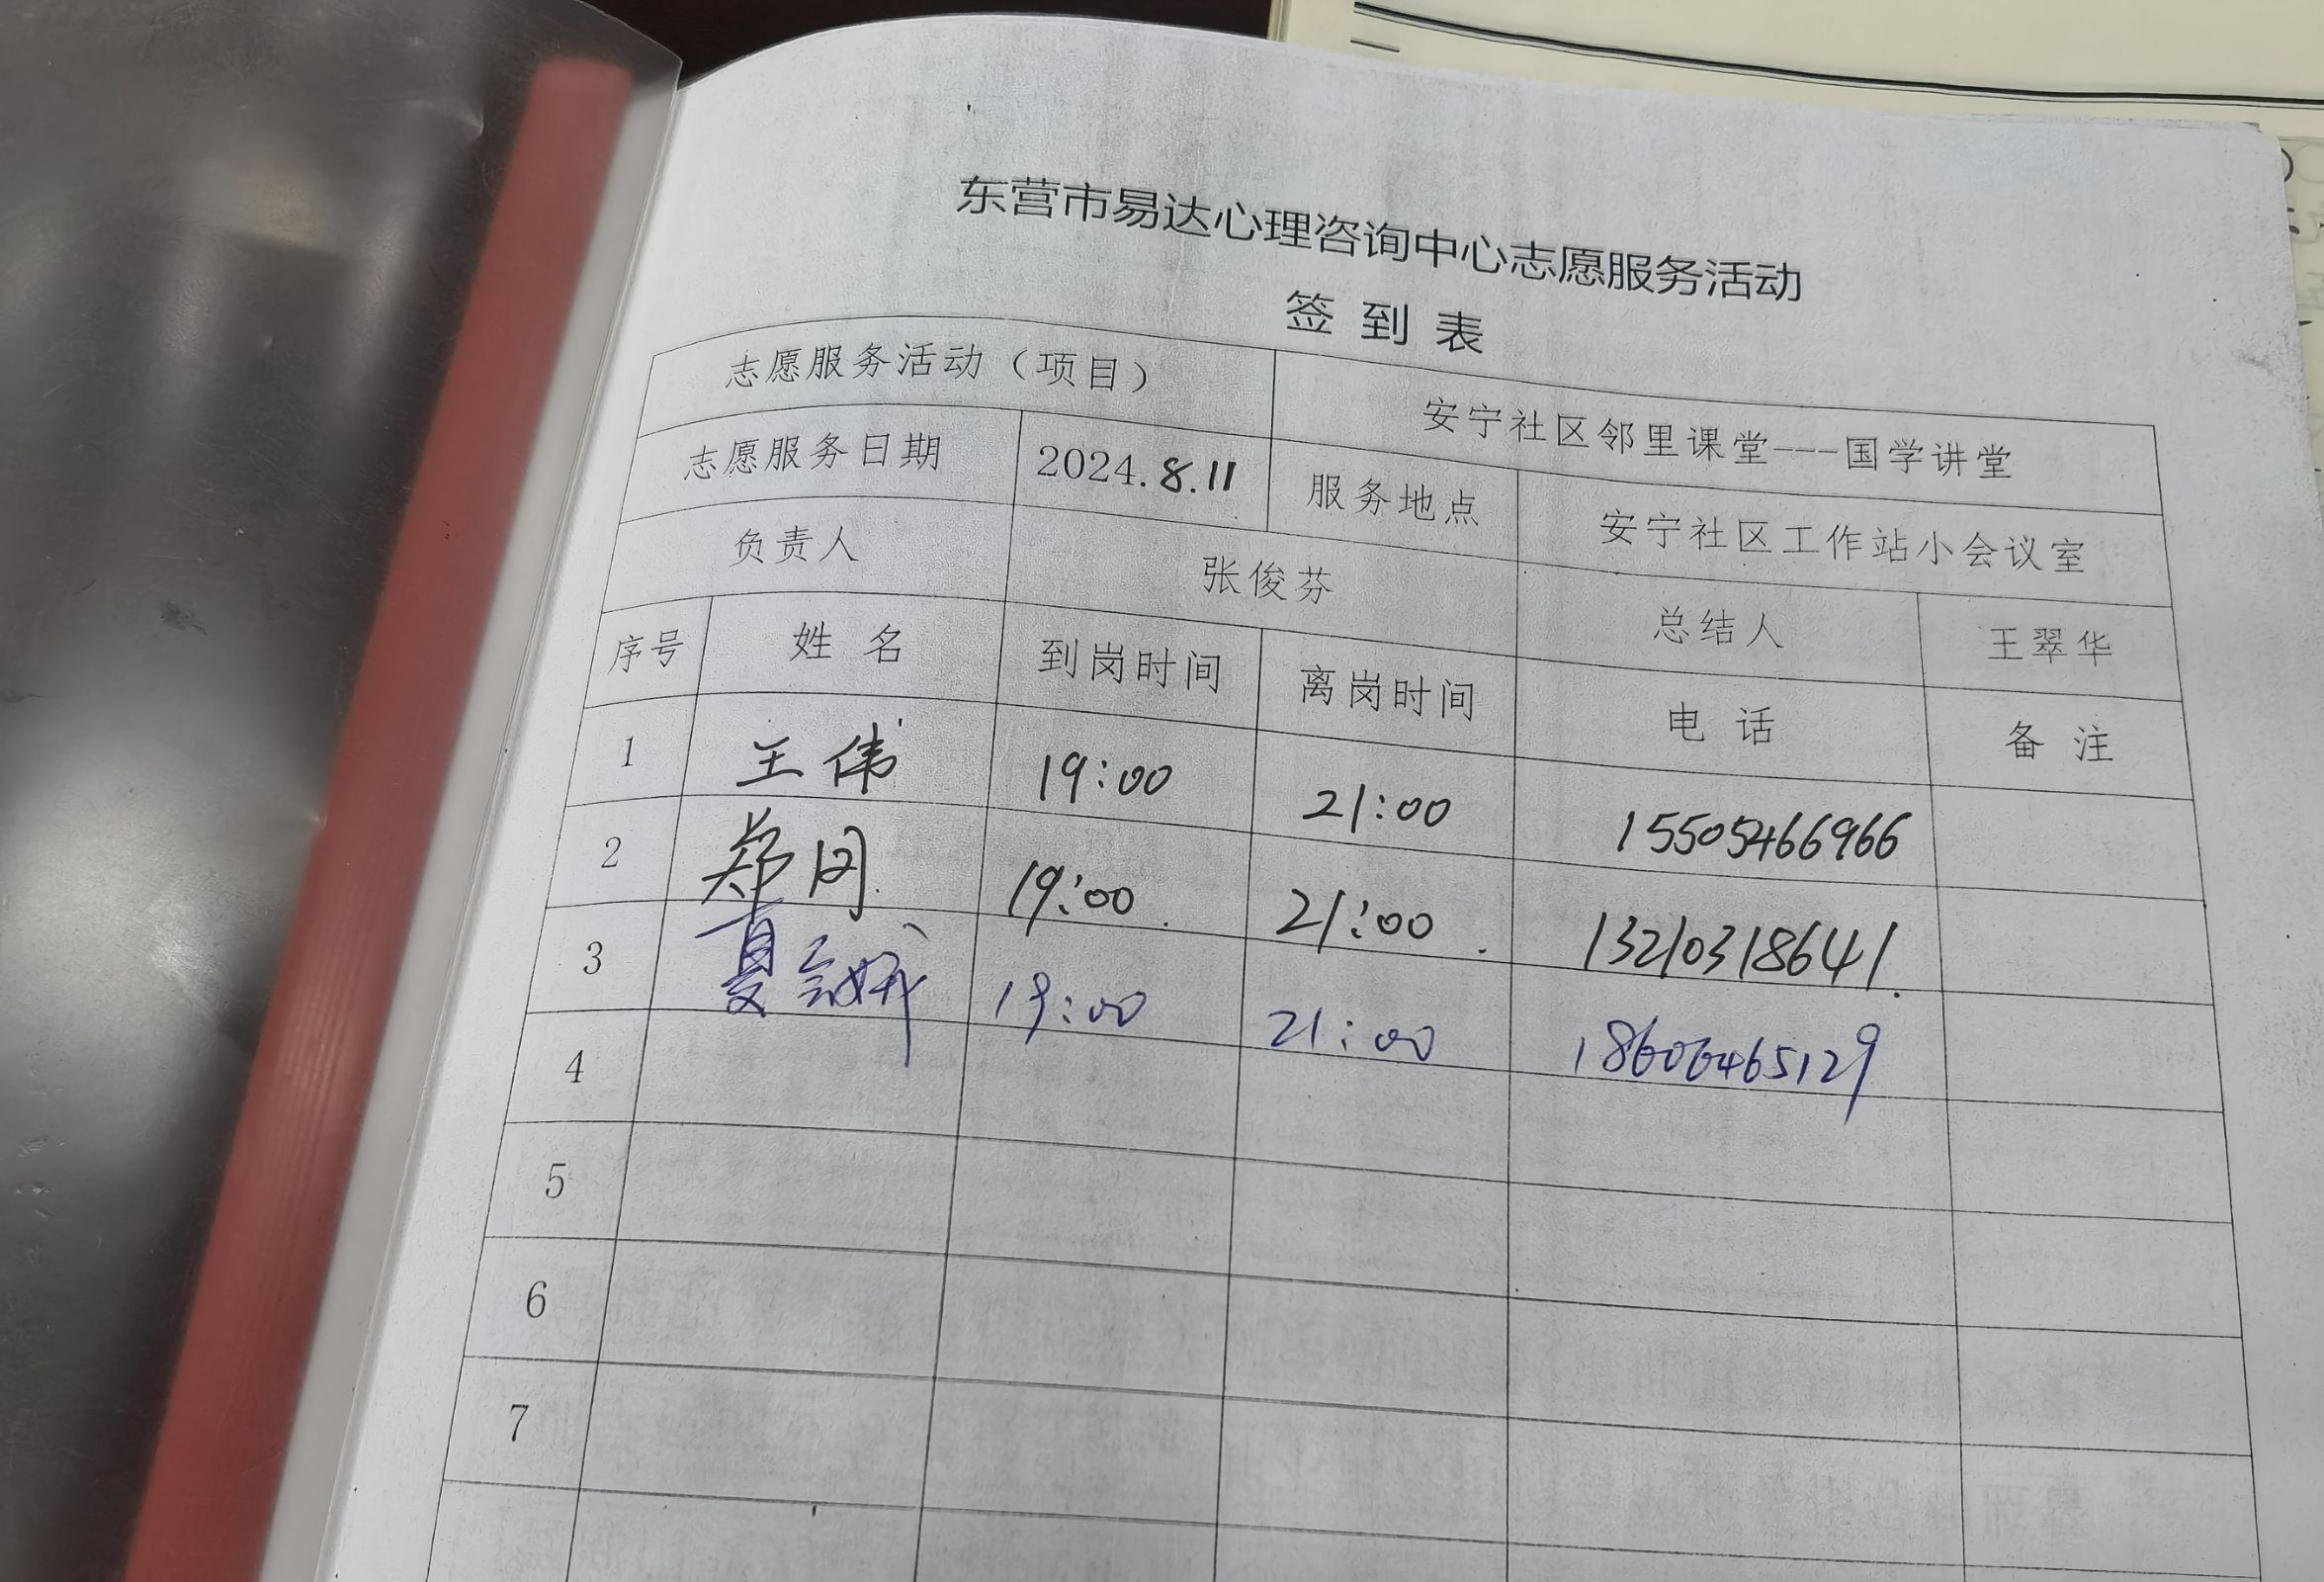 东营市易达心理咨询中心志愿服务活动
签 到 表
志愿服务活动（项目） 安宁社区邻里课堂---国学讲堂
志愿服务日期 2024.8.11 服务地点 安宁社区工作站小会议室
负责人 张俊芬 总结人 王翠华
序号 姓 名 到岗时间 离岗时间 电 话 备 注
1 王伟 19:00 21:00 15505466966
2 郑 19:00 21:00 13210318641
3 夏会娥 19:00 21:00 18606465129
4
5
6
7